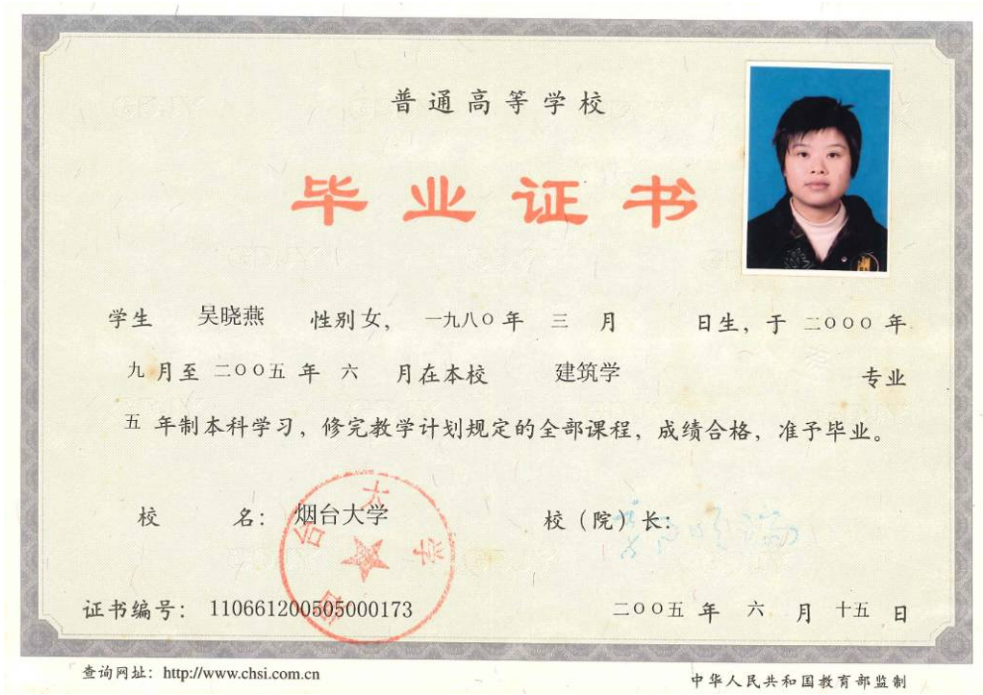 普通高等学校
毕业证书
学生 吴晓燕 性别 女， 一九八〇 年 三 月 日生，于 二〇〇〇 年
九 月至 二〇〇五 年 六 月在本校 建筑学 专业
五 年制本科学习，修完教学计划规定的全部课程，成绩合格，准予毕业。
校 名： 烟台大学 校（院）长：
证书编号： 110661200505000173 二〇〇五 年 六 月 十五 日
查询网址：http://www.chsi.com.cn 中华人民共和国教育部监制